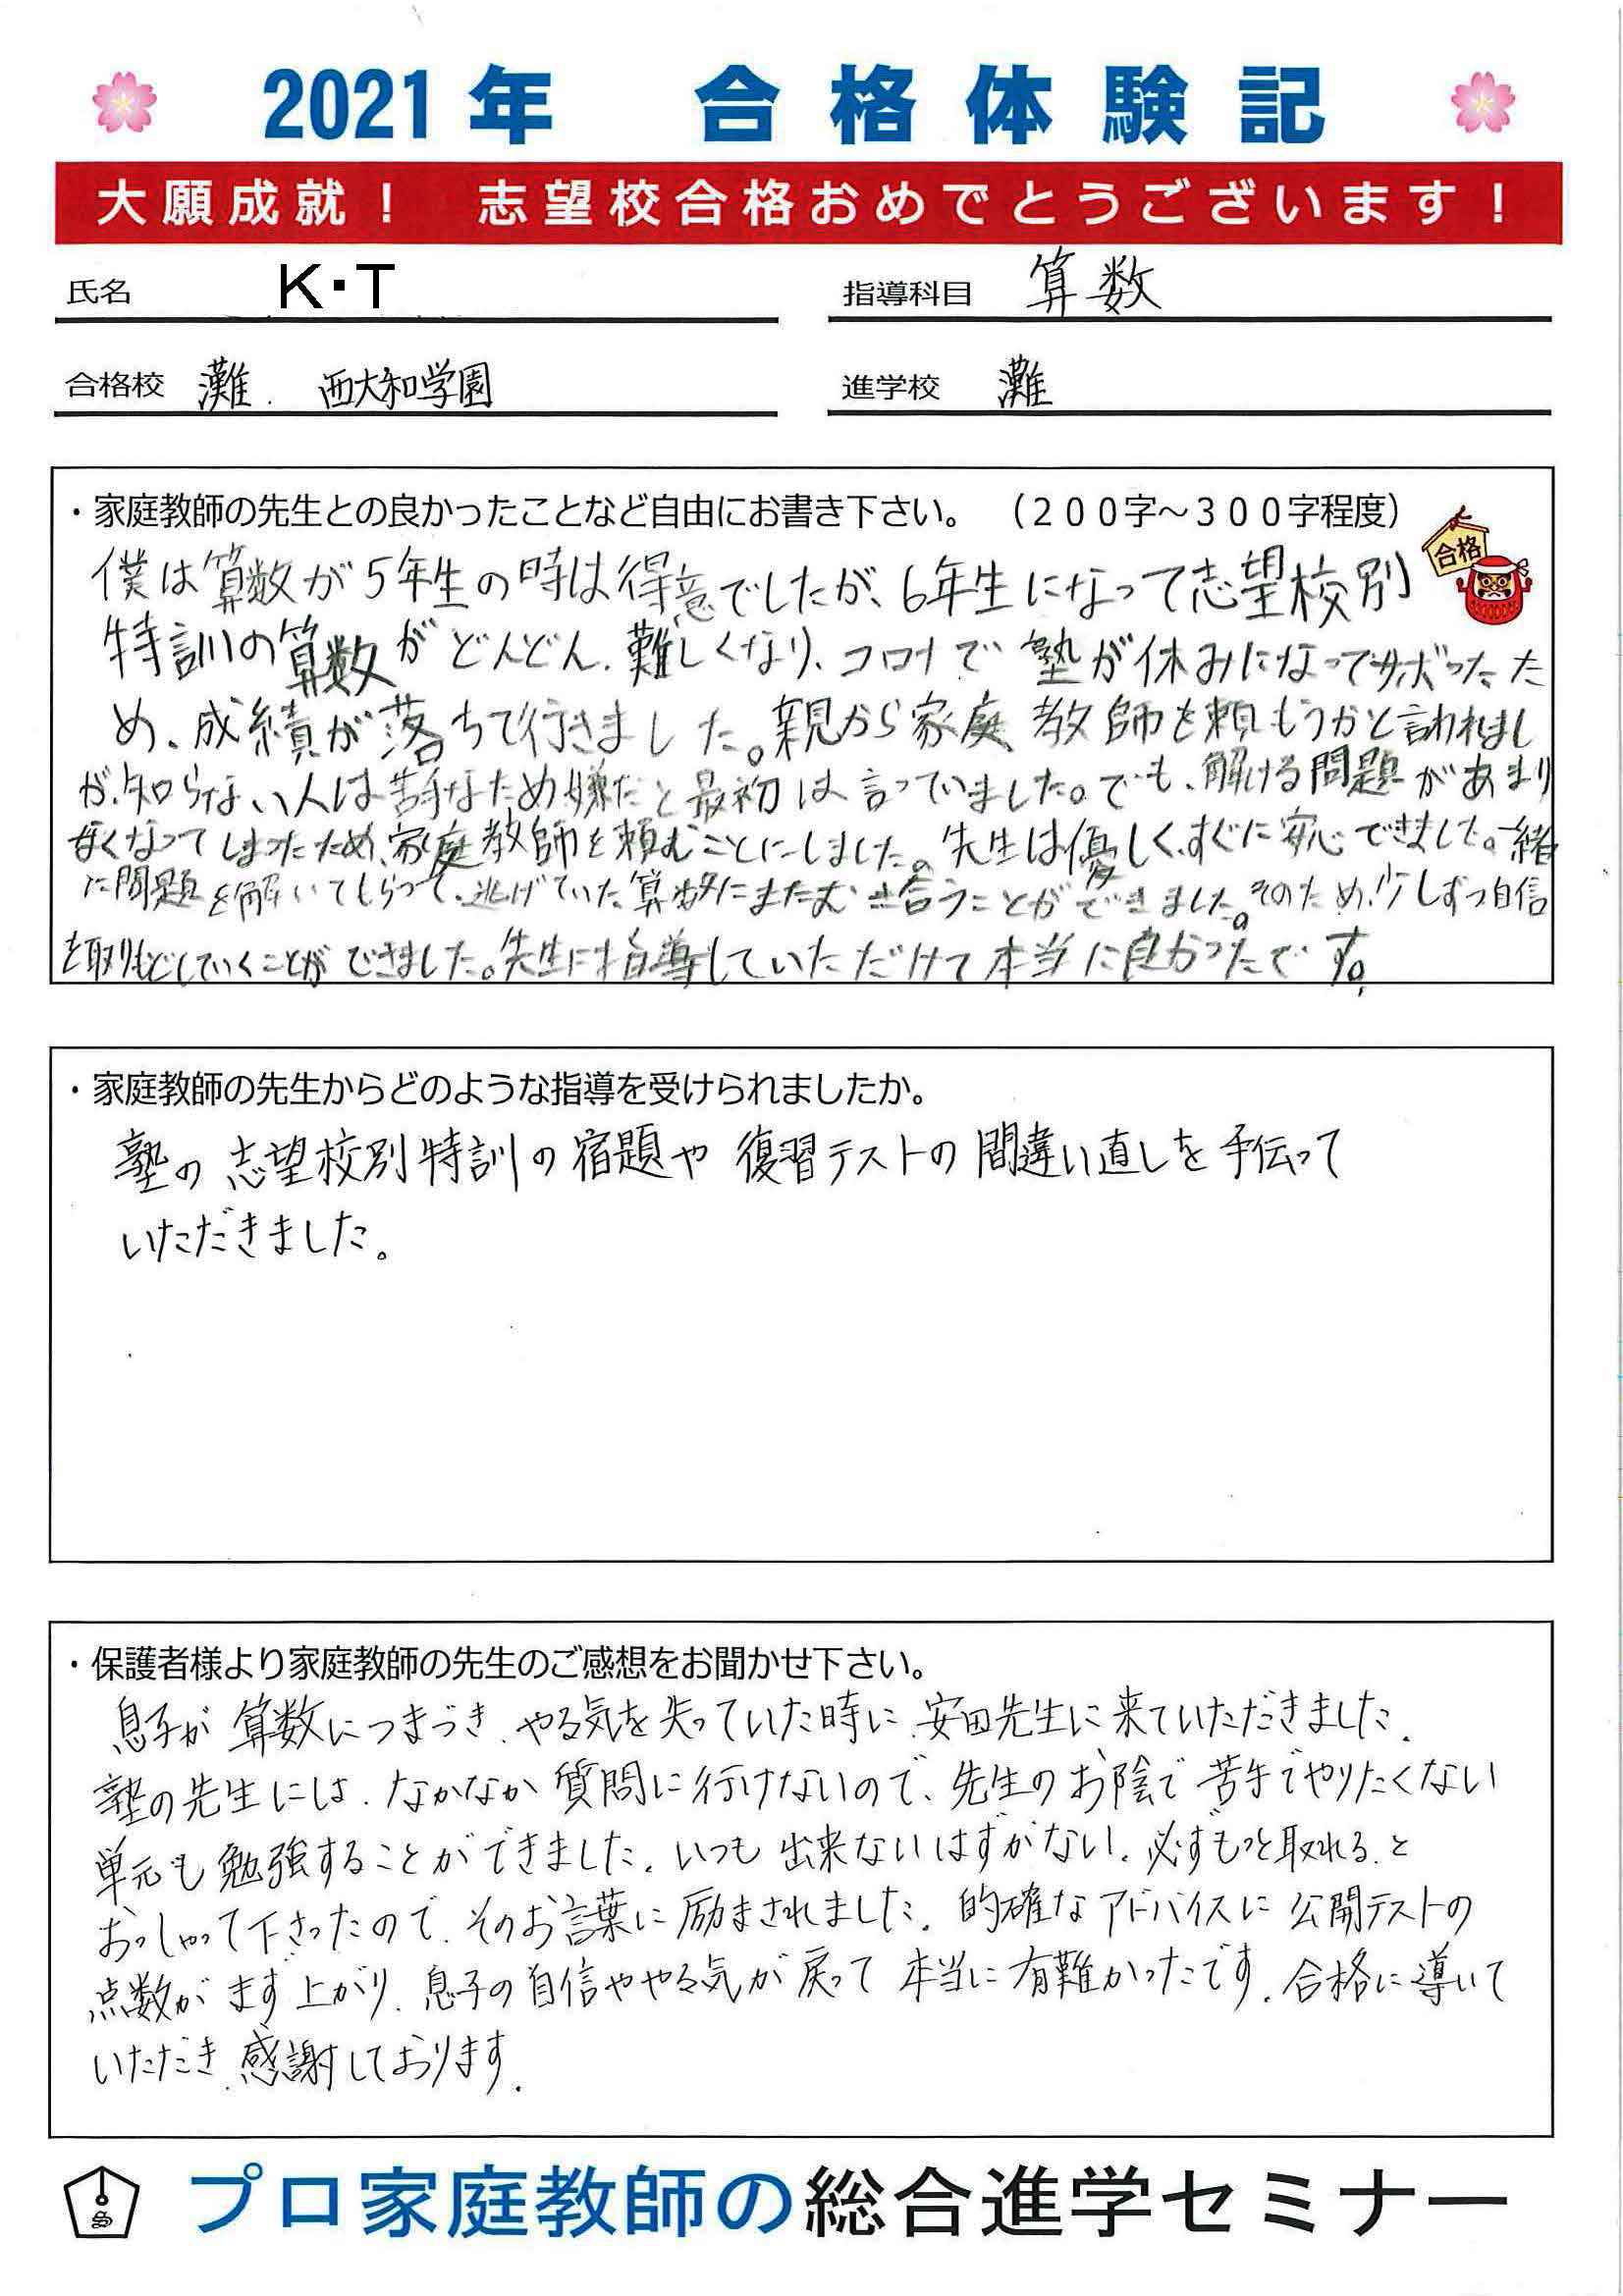 2021年 合格体験記
大願成就！ 志望校合格おめでとうございます！
氏名 K・T 指導科目 算数
合格校 灘. 西大和学園 進学校 灘
・家庭教師の先生との良かったことなど自由にお書き下さい。（２００字～３００字程度）
合格
僕は算数が5年生の時は得意でしたが、6年生になって志望校別
特訓の算数がどんどん、難しくなり、コロナで塾が休みになってサボったた
め、成績が落ちて行きました。親から家庭教師を頼もうかと言われまし
が、知らない人は苦手なため嫌だと最初は言っていました。でも、解ける問題があまり
なくなってしまったため、家庭教師を頼むことにしました。先生は優しく、すぐに安心できました。一緒
に問題を解いてもらって、逃げていた算数にまたむき合うことができました。そのため、少しずつ自信
を取りもどしていくことができました。先生に指導していただけて本当に良かったです。
・家庭教師の先生からどのような指導を受けられましたか。
塾の志望校別特訓の宿題や復習テストの間違い直しを手伝って
いただきました。
・保護者様より家庭教師の先生のご感想をお聞かせ下さい。
息子が算数につまづき、やる気を失っていた時に、安田先生に来ていただきました。
塾の先生には、なかなか質問に行けないので、先生のお陰で苦手でやりたくない
単元も勉強することができました。いつも出来ないはずがない。必ずもっと取れる、と
おっしゃって下さったので、そのお言葉に励まされました。的確なアドバイスに公開テストの
点数がまず上がり、息子の自信ややる気が戻って本当に有難かったです。合格に導いて
いただき、感謝しております。
プロ家庭教師の総合進学セミナー